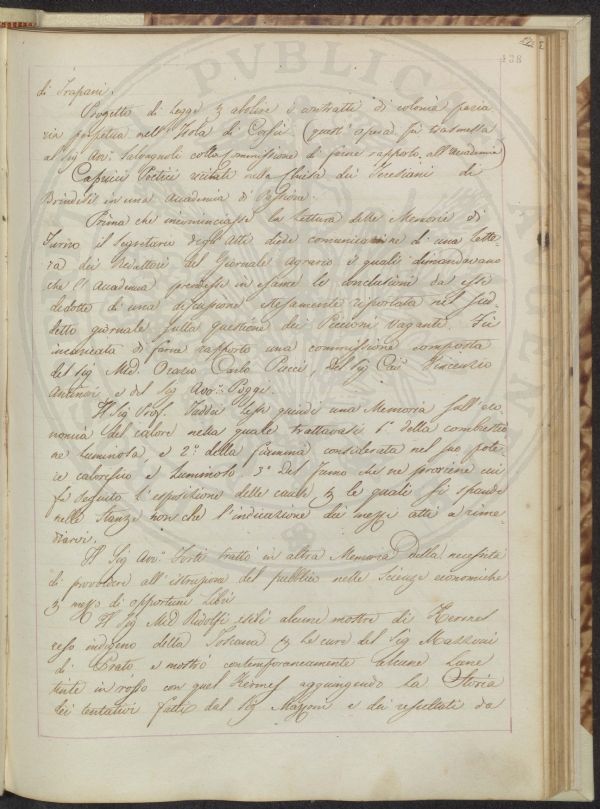 138
di Trapani.
Progetto di Legge p abolire i contratti di colonia parzia
ria perpetua nell'Isola di Corfù (quest'opera fu trasmessa
al Sig Avv. Salvagnoli colla commissione di farne rapporto all'Accademia)
Caprici Poetici recitati nella chiesa dei Teresiani di
Brindisi in una Accademia di Passione.
Prima che incominciasse la Lettura delle Memorie di
Turno il Segretario degli Atti diede comunicazione di una Lette-
ra dei Redattori del Giornale Agrario i quali dimandavano
che l'Accademia prendesse in esame le conclusioni da essi
dedotte di una discussione stesamente riportata nel sud
detto giornale sulla questione dei Piccioni vaganti. Fu
incaricata di farne rapporto una commissione composta
del Sig Med. Orazio Carlo Pucci, del Sig Cav Vincenzio
Antinori e del Sig Avv. Poggi.
Il Sig Prof. Taddei lesse quindi una Memoria sull'eco
nomia del calore nella quale trattavasi 1° della combustio
ne luminosa, e 2° della fiamma considerata nel suo pote-
re calorifico e luminoso 3° del fumo che ne proviene cui
fe seguito l'esposizione delle cause p le quali si spande
nelle stanze non che l'indicazione dei mezzi atti a rime-
diarvi.
Il Sig Avv. Forti trattò in altra Memoria della necessità
di provvedere all'istruzione del pubblico nelle scienze economiche
p mezzo di opportuni Libri
Il Sig Med Ridolfi esibì alcune mostre di Kermes
reso indigeno della Toscana p le cure del Sig Mazzoni
di Prato e mostrò contemporaneamente alcune Lane
tinte in rosso con quel Kermes aggiungendo la Storia
dei tentativi fatti dal Sig Mazzoni e dei resultati da